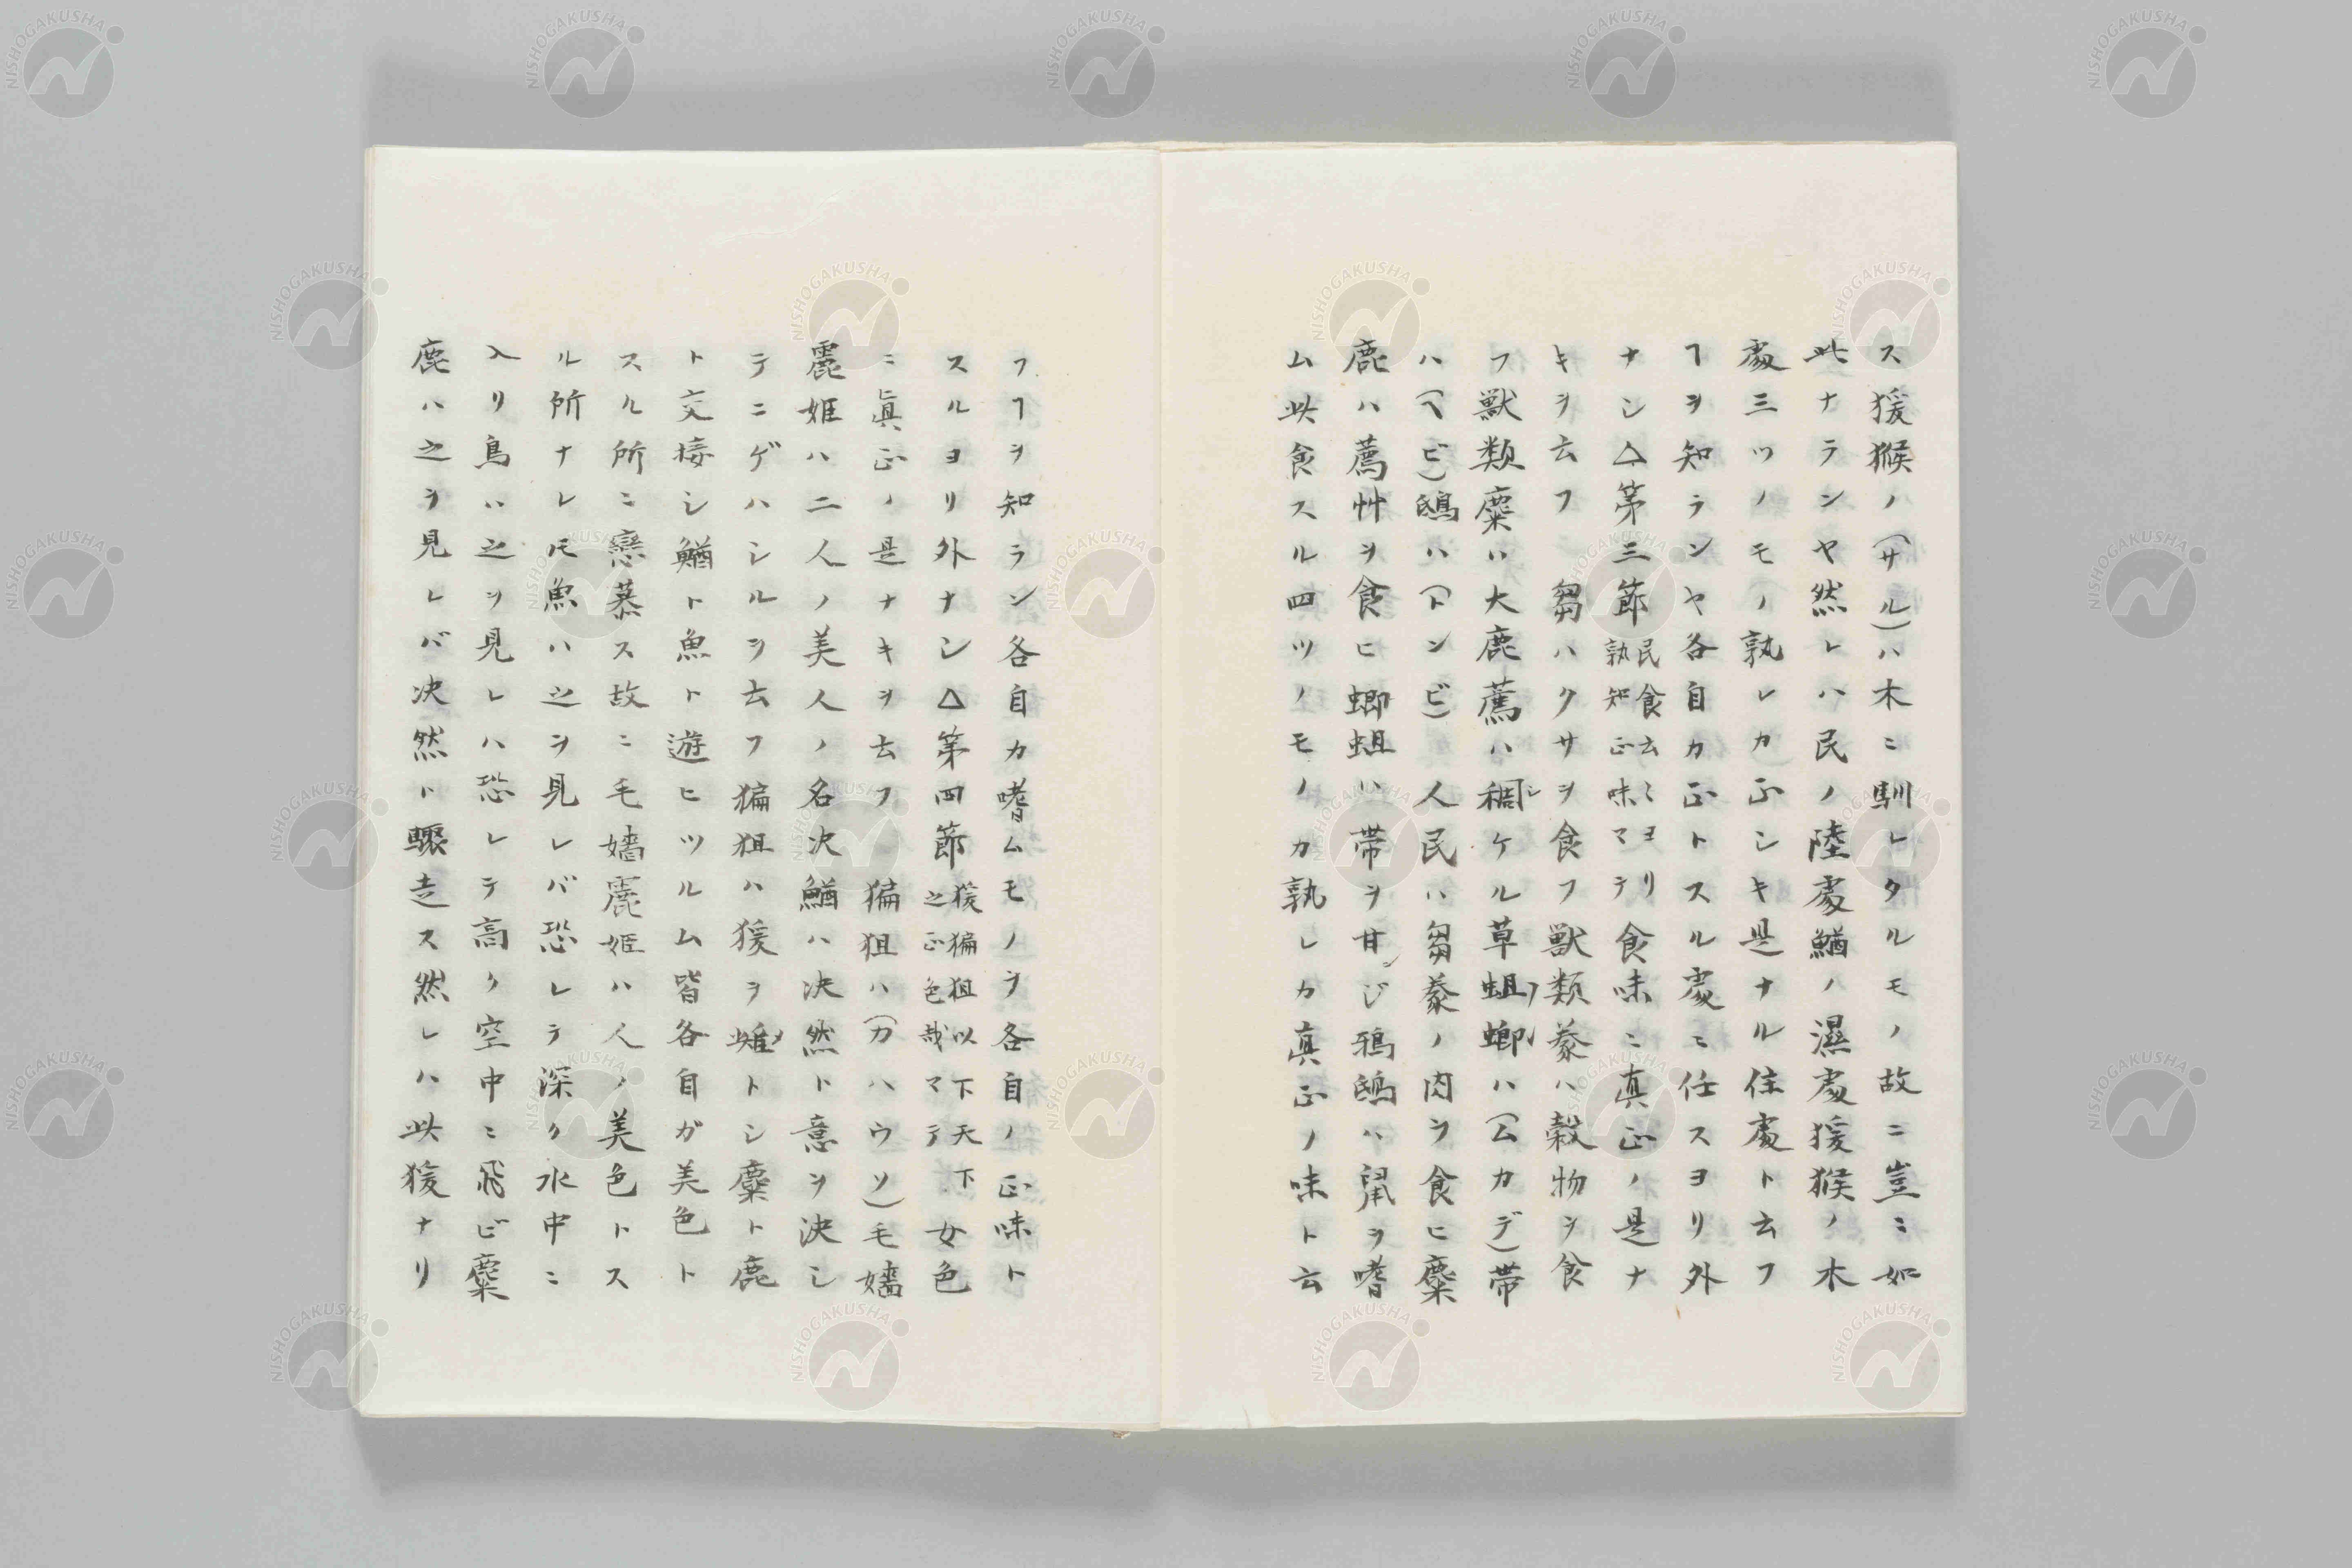 ス猨猴ノ(サル)ハ木ニ馴レタルモノ故ニ豈ニ如
此ナランヤ然レハ民ノ陸處鰌ノ濕處猨猴ノ木
處三ツノモノ孰レカ正シキ是ナル住處ト云フ
ヿヲ知ランヤ各自カ正トスル處ニ任スヨリ外
ナシ△第三節民食云〻ヨリ孰知正味マテ食味ニ真正ノ是ナ
キヲ云フ 芻ハクサヲ食フ獣類豢ハ穀物ヲ食
フ獣類麋ハ大鹿薦ハ稠シケル草蛆蝍ハ(ムカデ)帯
ハ(ヘビ)鴟ハ(トンビ)人民ハ芻豢ノ肉ヲ食ヒ麋
鹿ハ薦艸ヲ食ヒ蝍蛆ハ帯ヲ甘ンジ鴉鴟ハ鼠ヲ嗜
ム此食スル四ツノモノカ孰レカ真正ノ味ト云
フヿヲ知ラン各自カ嗜ムモノヲ各自ノ正味ト
スルヨリ外ナシ△第四節猨猵狙以下天下之正色哉マテ女色
ニ眞正ノ是ナキヲ云フ 猵狙ハ(カハウソ)毛嬙
麗姫ハ二人ノ美人ノ名次鰌ハ决然ト意ヲ決シ
テニゲハシルヲ云フ猵狙ハ猨ヲ雌メトシ麋ト鹿
ト交接シ鰌ト魚ト遊ヒツルム皆各自ガ美色ト
スル所ニ戀慕ス故ニ毛嬙麗姫ハ人ノ美色トス
ル所ナレ𪜈魚ハ之ヲ見レバ恐レテ深ク水中ニ
入リ鳥ハ之ヲ見レハ恐レテ高ク空中ニ飛ビ麋
鹿ハ之ヲ見レバ决然ト驟走ス然レハ此猨ナリ